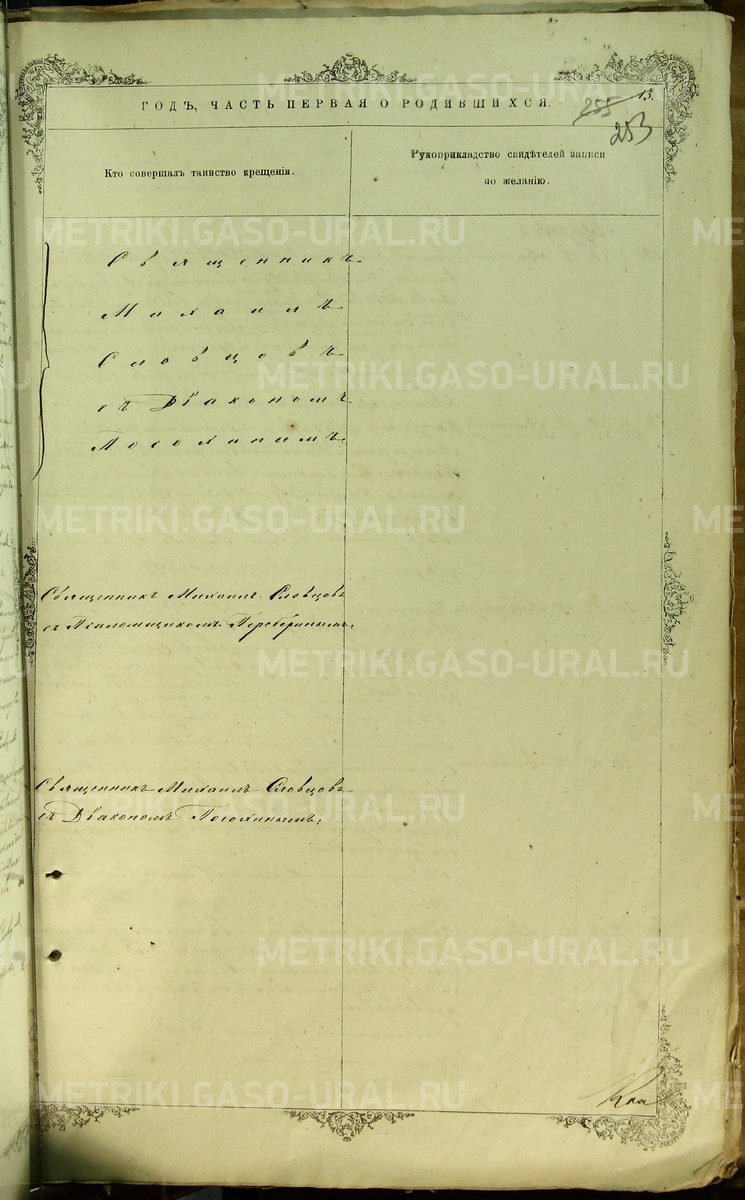 ГОДЪ, ЧАСТЬ ПЕРВАЯ О РОДИВШИХСЯ.
13.
255
253
Кто совершалъ таинство крещенія.
Рукоприкладство свидѣтелей записи
по желанію.
Священникъ
Михаилъ
Словцовъ
съ Діакономъ
Посохинымъ
Священникъ Михаилъ Словцовъ
съ Псаломщикомъ
Священникъ Михаилъ Словцовъ
съ Діакономъ Посохинымъ.
METRIKI.GASO-URAL.RU